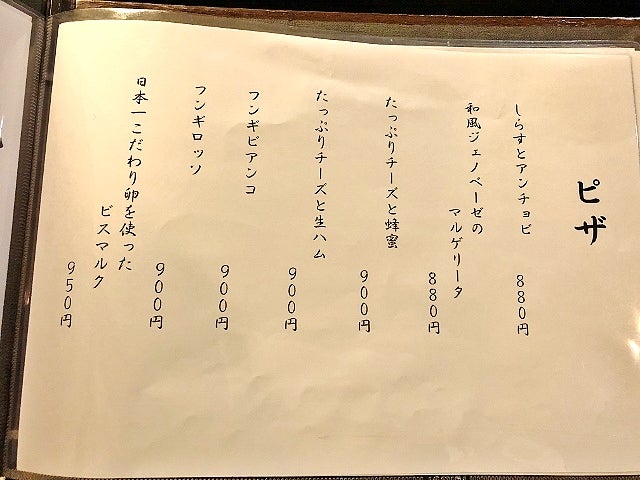 ピザ
しらすとアンチョビ 880円
和風ジェノベーゼの
マルゲリータ 880円
たっぷりチーズと蜂蜜 900円
たっぷりチーズと生ハム 900円
フンギビアンコ 900円
フンギロッソ 900円
日本一こだわり卵を使った
ビスマルク 950円